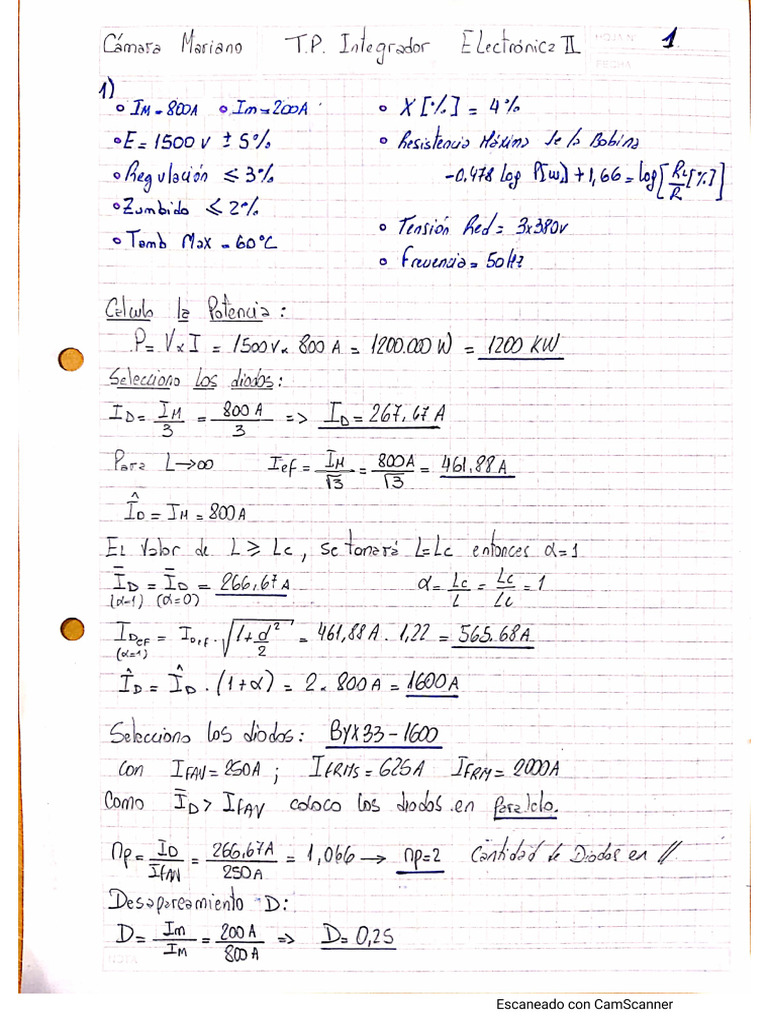 Cámara Mariano T.P. Integrador Electrónica II HOJA Nº 1
FECHA
1)
• IM = 800A • Im = 200A
• E = 1500 V ± 5%
• Regulación ≤ 3%
• Zumbido ≤ 2%
• Tamb Max = 60°C
• X [%] = 4%
• Resistencia Máxima de la Bobina
-0,478 log P[W] + 1,66 = log [RL/R [%]]
• Tensión Red = 3x380v
• Frecuencia = 50Hz
Calculo la Potencia:
P = V x I = 1500 v x 800 A = 1200.000 W = 1200 KW
Selecciono los diodos:
ID = IM/3 = 800 A/3 => ID = 267,67 A
Para L→∞ Ief = IM/√3 = 800A/√3 = 461,88 A
ÎD = IM = 800 A
El valor de L ≥ Lc, se tomará L = Lc entonces α = 1
ĪD (α=1) = ĪD (α=0) = 266,67 A α = Lc/L = Lc/Lc = 1
IDef (α=1) = IDef . √(1 + α²/2) = 461,88 A . 1,22 = 565.68 A
ÎD = ÎD . (1+α) = 2 x 800 A = 1600 A
Selecciono los diodos: BYX33-1600
con IFAV = 250A ; IFRMS = 625A IFRM = 2000A
Como ĪD > IFAV coloco los diodos en Paralelo.
np = ID/IFAV = 266,67A/250A = 1,066 → np=2 Cantidad de Diodos en //
Desapareamiento D:
D = Im/IM = 200 A/800 A => D = 0,25
NOTA
Escaneado con CamScanner